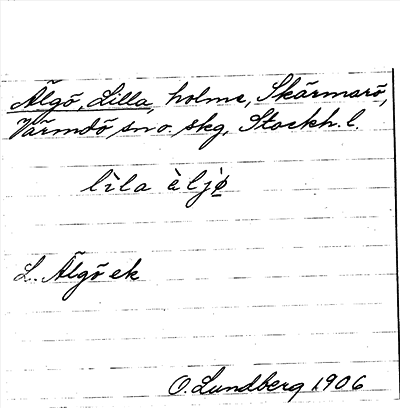 Älgö, Lilla, holme, Skärmarö,
Värmdö sn o. skg, Stockh. l.
lìla àljø
L. Älgö ek
O. Lundberg 1906